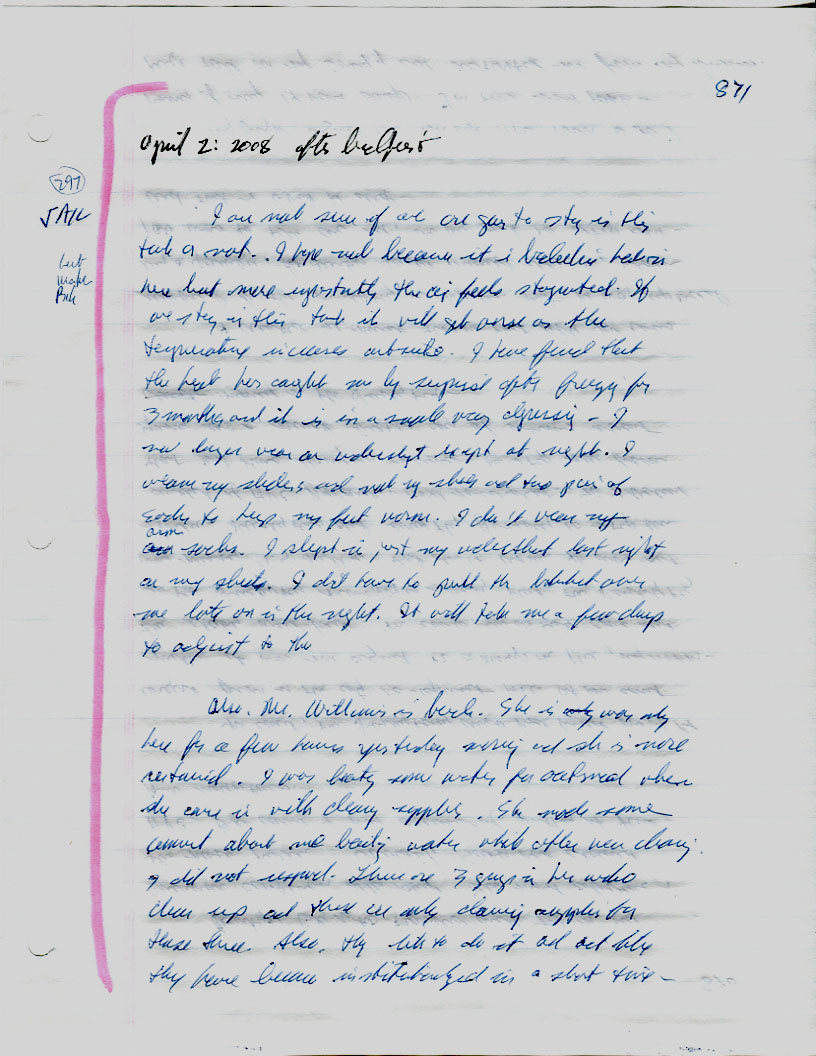 871
April 2: 2008 after breakfast
297
JAIL
but
I am not sure if we are going to stay in this
tank or not. I hope not because it is in
here but more importantly the air feels stagnated. If
we stay in this tank it will get worse as the
temperature increases outside. I have found that
the heat has caught me by surprise after freezing for
3 months and it is in a way depressing - I
no longer wear an undershirt except at night. I
wear my and not my shoes and two pair of
socks to keep my feet warm. I don't wear my
arm socks. I slept in just my undershirt last night
on my sheets. I don't have to pull the blanket over
me late on in the night. It will take me a few days
to adjust to the
Also, Ms. Williams is back. She is only was only
here for a few hours yesterday morning and she is more
restrained. I was heating some water for oatmeal when
she came in with cleaning supplies. She made some
comment about me heating water while other men cleaning.
I did not respond. There are 3 guys in here who
clean up and there are only cleaning supplies for
those three. Also, they like to do it and act like
they have become institutionalized in a short time -